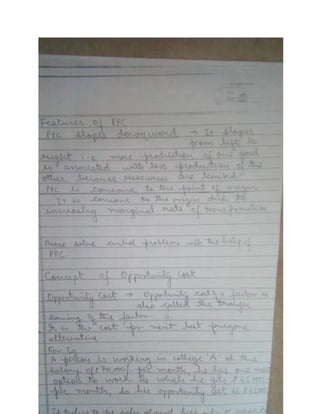 Features of PPC
PPC slopes downward → It slopes
from left to
right i.e. more production of one good
is associated with less production of the
other because resources are limited
PPC is concave to the point of origin
It is concave to the origin due to
increasing marginal rate of transformation
Please solve central problems with the help of
PPC.
Concept of Opportunity Cost
Opportunity Cost → Opportunity cost of a factor is
also called the transfer
earning of the factor
It is the cost for next best foregone
alternative
For Eg.
A person is working in college 'A' at the
salary of ₹ 70,000/ per month, he has one more
option to work in which he gets
per month, So his opportunity cost is